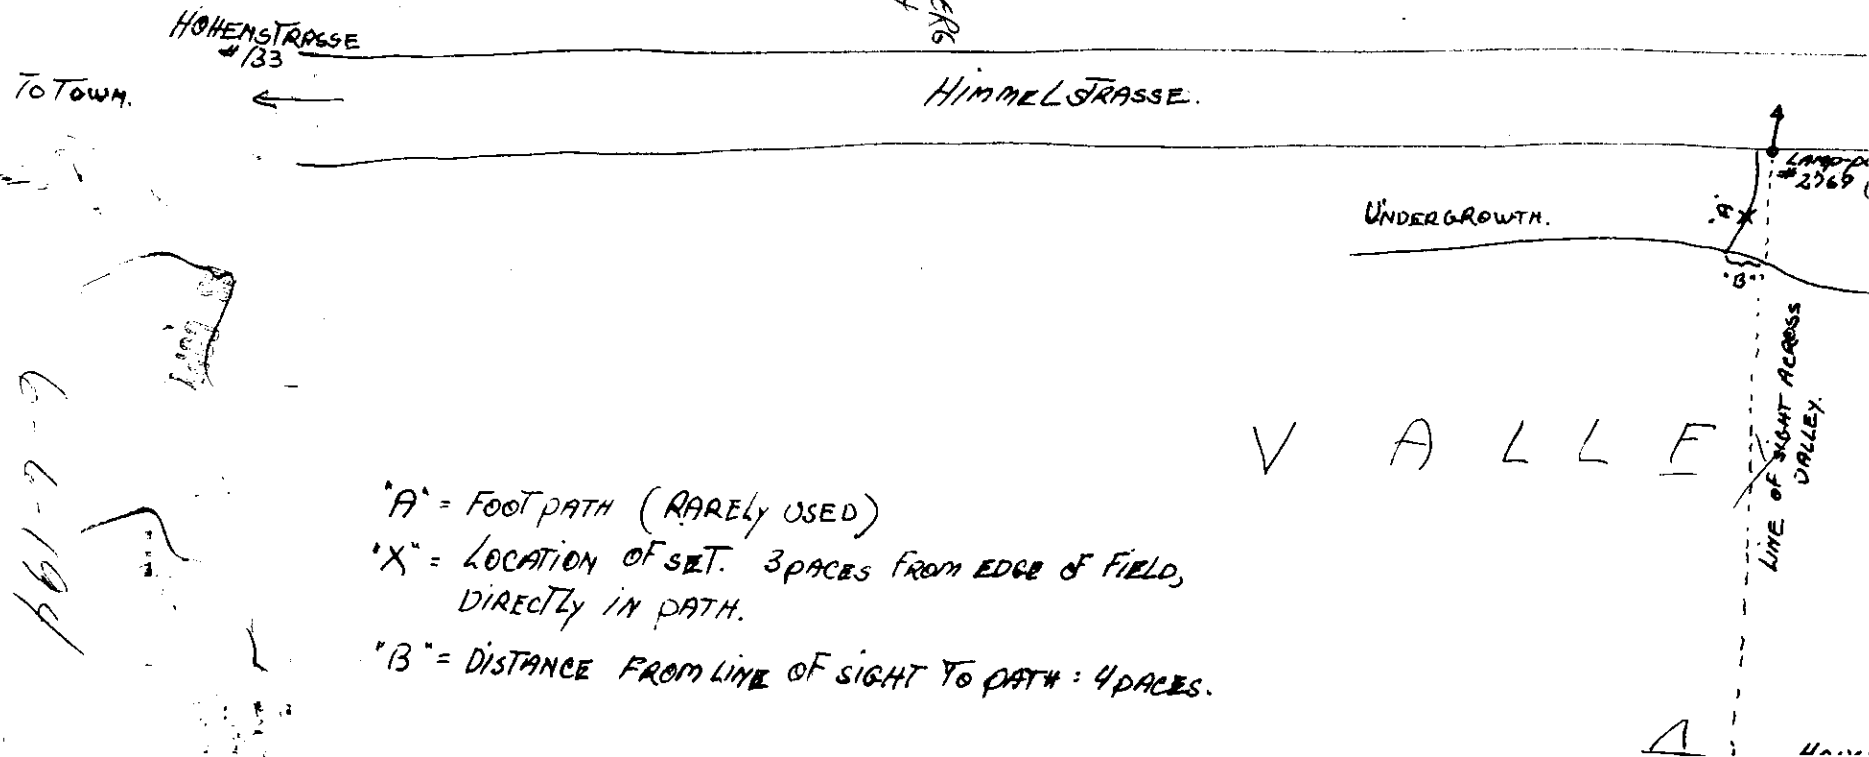 HOHENSTRASSE
#133
TO TOWN.
HIMMELSTRASSE.
#2769
UNDERGROWTH.
"A"
"B"
LINE OF SIGHT ACROSS
VALLEY.
VALLEY
"A" = FOOTPATH (RARELY USED)
"X" = LOCATION OF SET. 3 PACES FROM EDGE OF FIELD,
DIRECTLY IN PATH.
"B" = DISTANCE FROM LINE OF SIGHT TO PATH: 4 PACES.